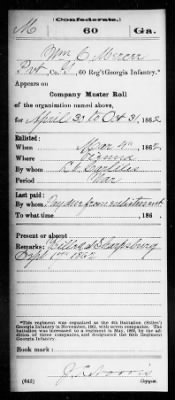 (Confederate.)
M 60 Ga.
Wm C Mercer
Pvt, Co. , 60 Reg't Georgia Infantry.*
Appears on
Company Muster Roll
of the organization named above,
for April 30 to Oct 31, 1862
Enlisted:
When Mar 4th, 1862.
Where
By whom
Period War
Last paid:
By whom Pay due from enlistment
To what time , 186 .
Present or absent
Remarks: Killed at Sharpsburg
Sept 17th 1862
*This regiment was organized as the 4th Battalion (Stiles')
Georgia Infantry in November, 1861, with seven companies. The
battalion was increased to a regiment in May, 1862, by the addi-
tion of three companies, and designated the 60th Regiment
Georgia Infantry.
Book mark:
(642) Copyist.